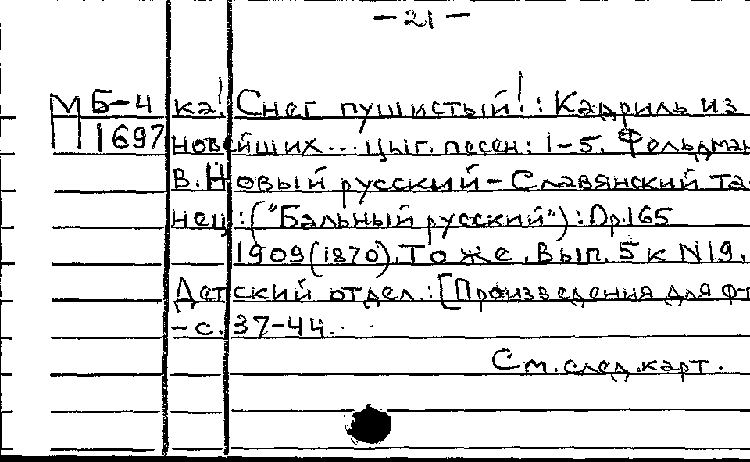 -21-
М Б-4 ка! Снег пушистый!: Кадриль из
П 1697 новейших... цыг. песен: 1-5. Фельдман
В. Новый русский-Славянский та-
нец: ("Бальный русский"): Op.165
1909(1870). То же. Вып. 5 к N19.
Детский отдел.: [Произведения для ф-п
-с. 37-44..
См. след. карт.